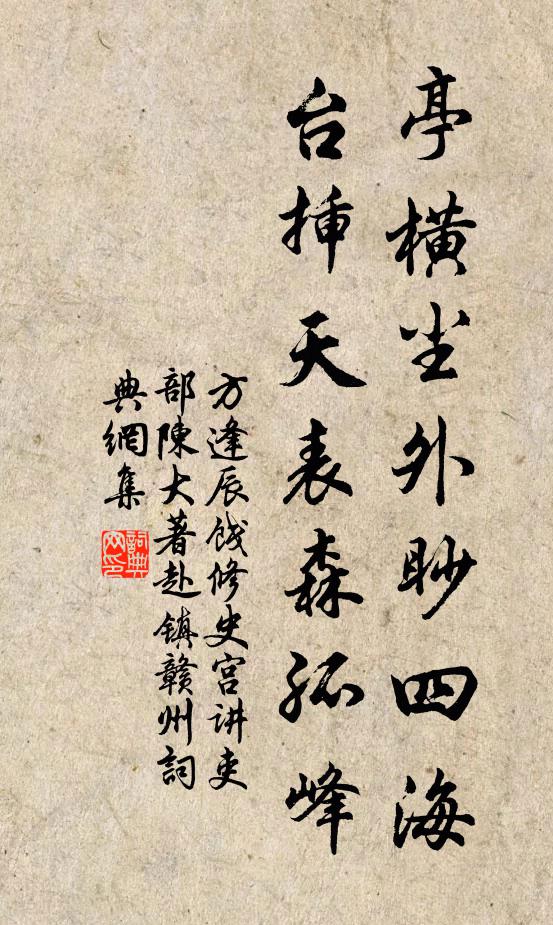 亭橫尘外眇四海
台挿天表森孤峰
方逢辰餞修史宫讲吏
部陳大著赴镇赣州詞
典網集
詞典网印